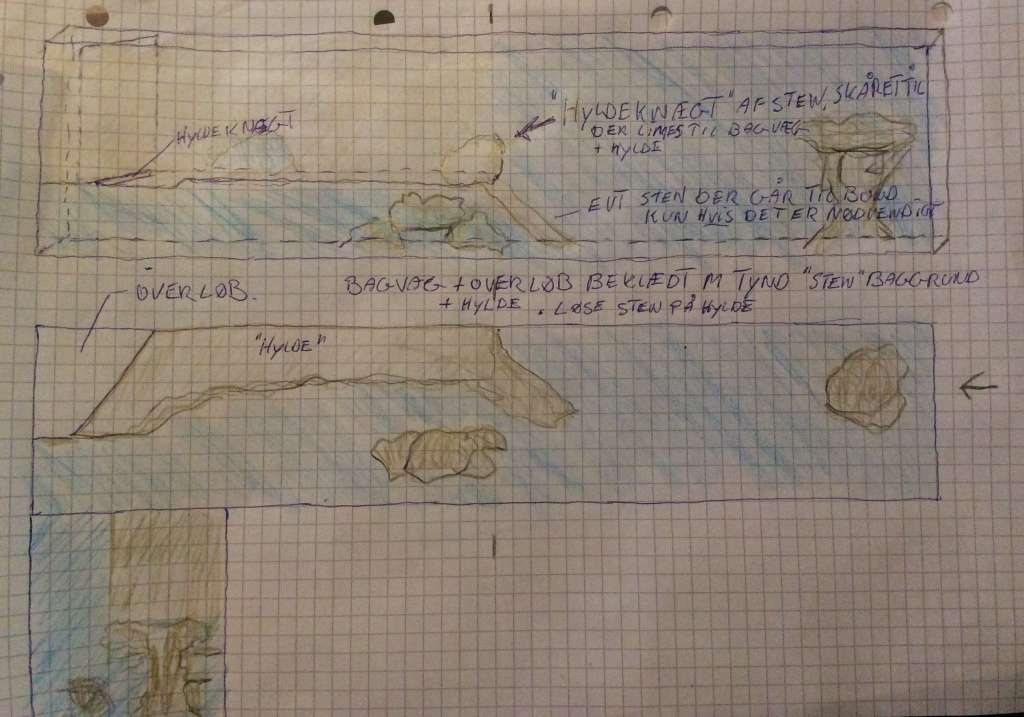 "HYLDEKNÆGT" AF STEN, SKÅRET TIL
DER LIMES TIL BAGVÆG
+ HYLDE
HYLDEKNÆGT
EVT STEN DER GÅR TIL BUND
KUN HVIS DET ER NØDVENDIGT
OVERLØB.
BAGVÆG + OVERLØB BEKLÆDT M TYND "STEN" BAGGRUND
+ HYLDE . LØSE STEN PÅ HYLDE
"HYLDE"